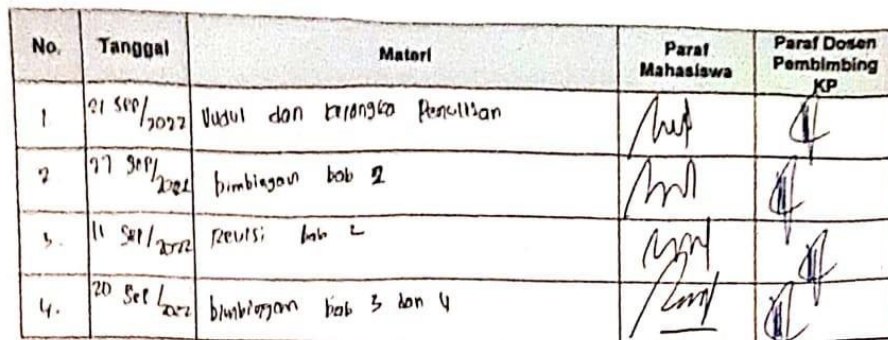 No. Tanggal Materi Paraf Mahasiswa Paraf Dosen Pembimbing KP
1 21 Sep/2022 Judul dan kerangka Penulisan
2 27 Sep/2022 bimbingan bab 2
3. 11 Sep/2022 Revisi bab 2
4. 20 Sep/2022 bimbingan bab 3 dan 4